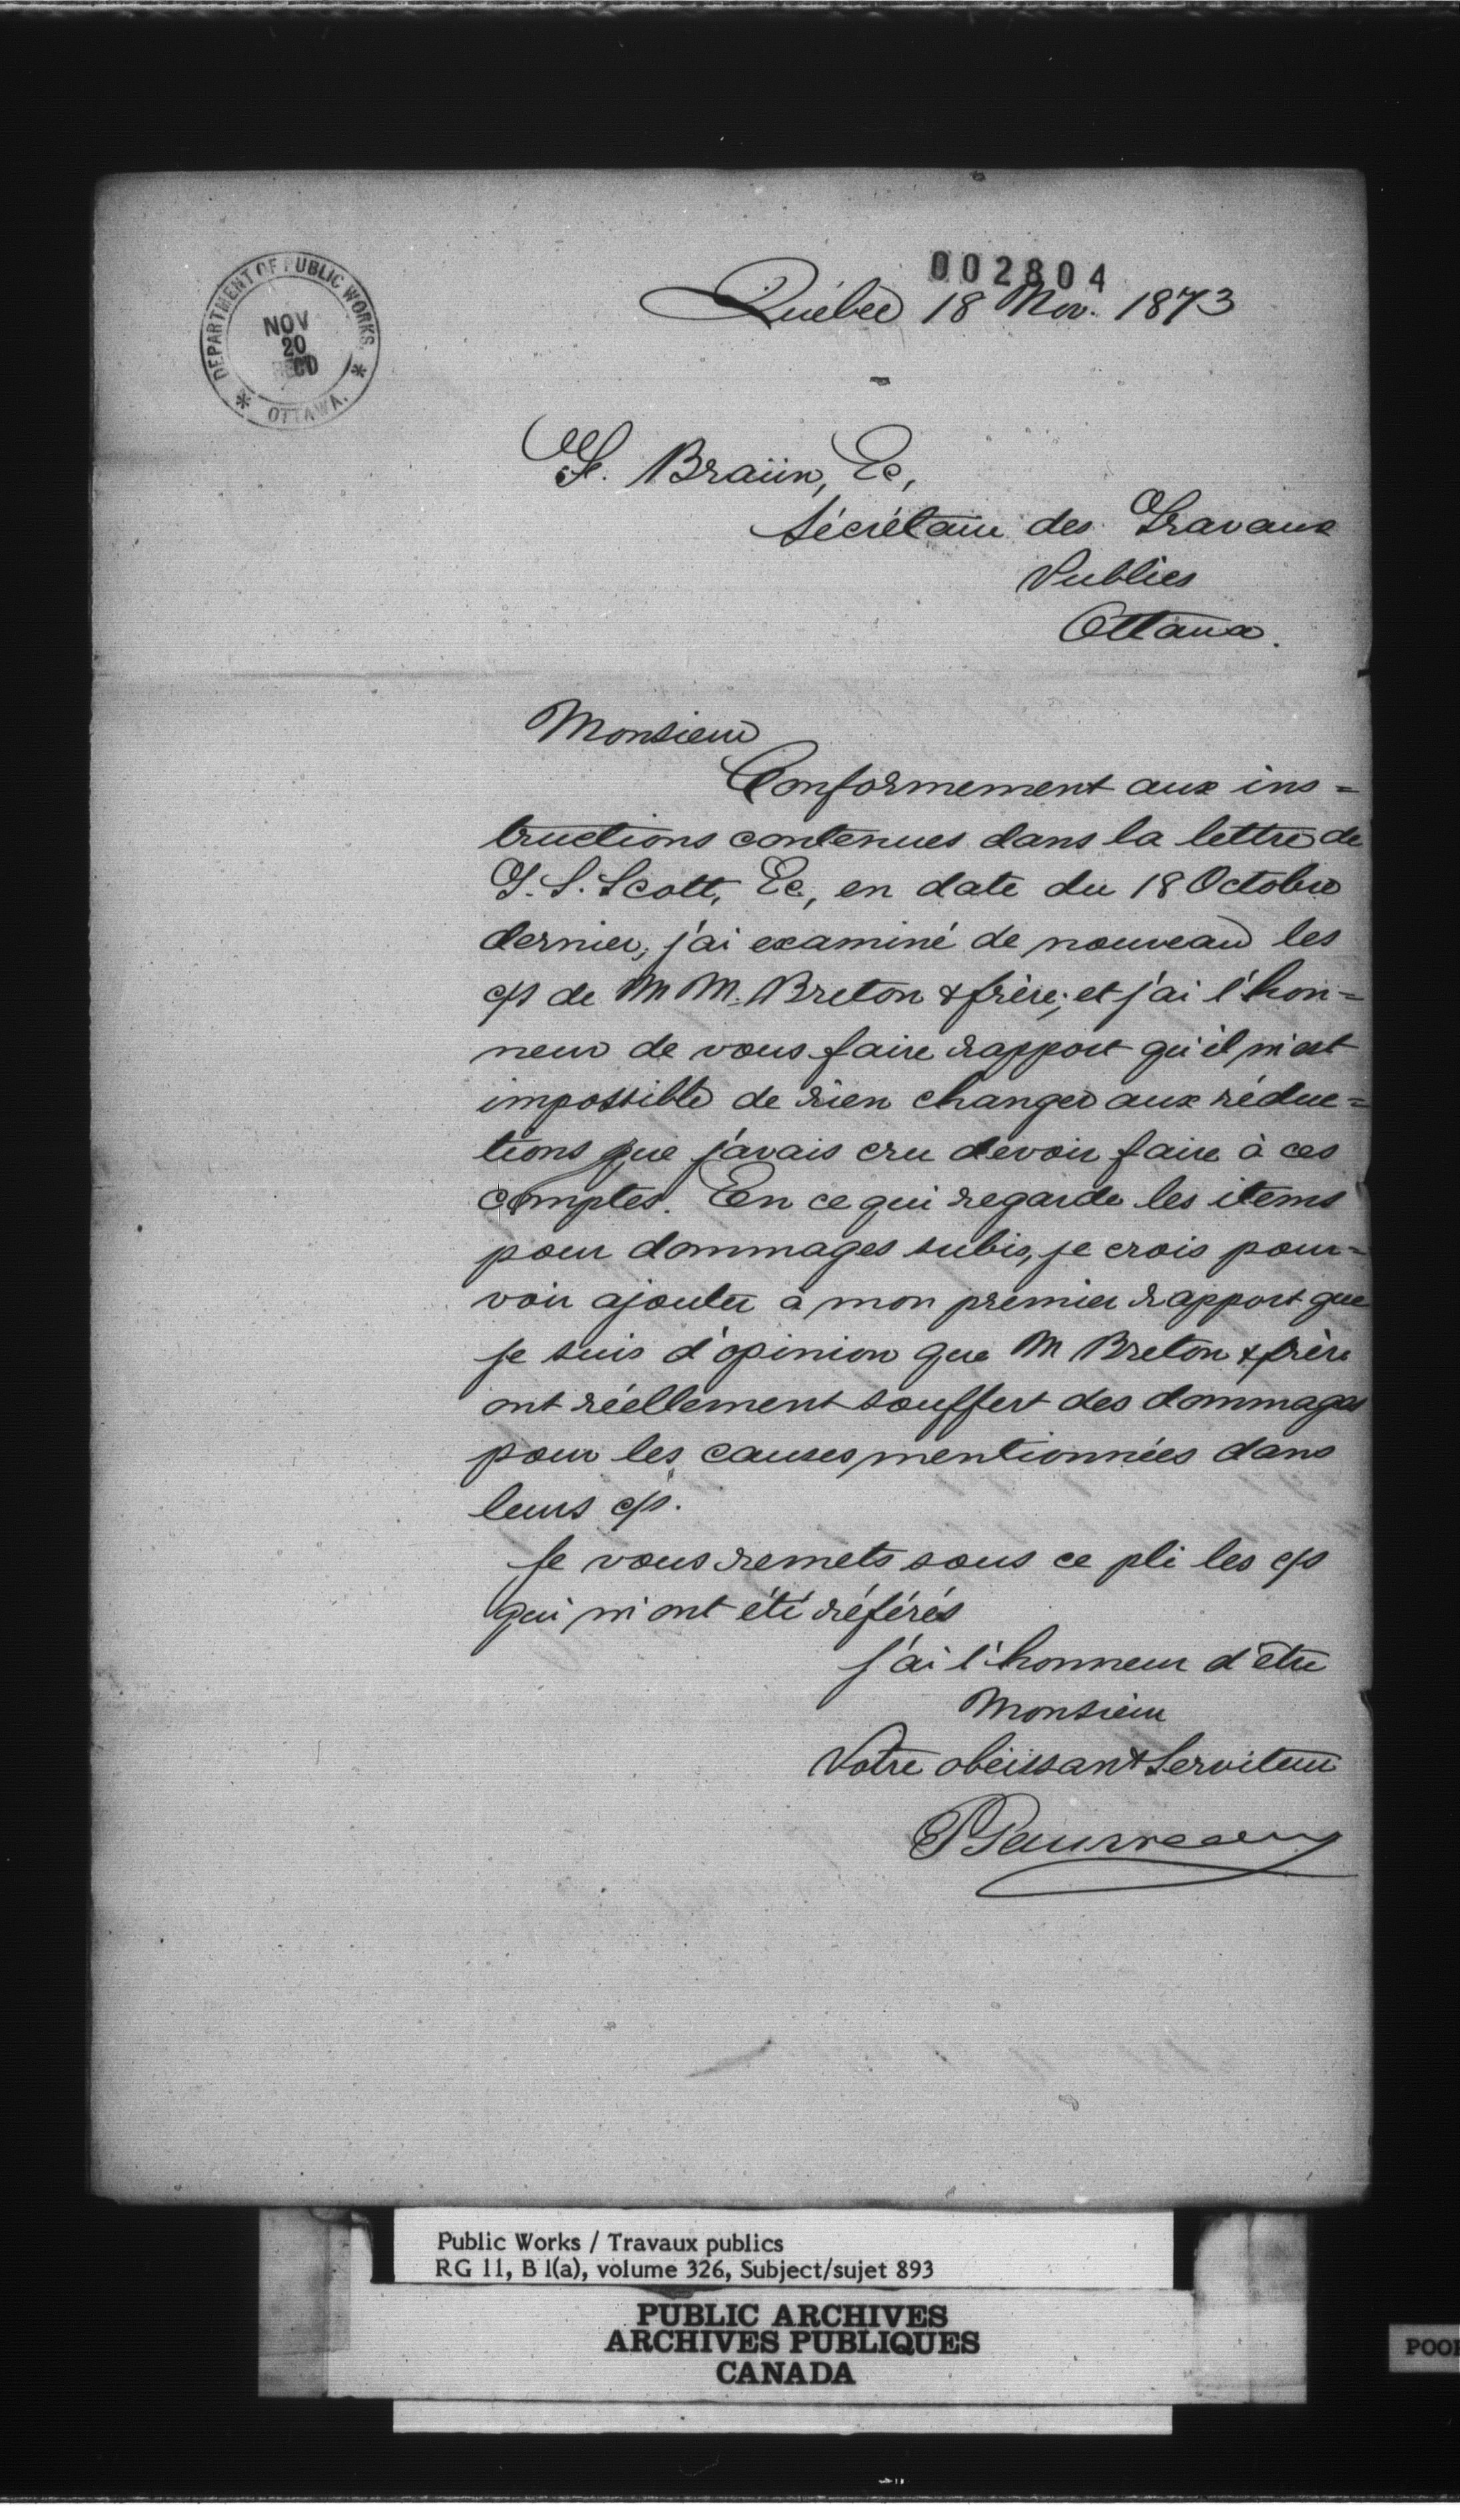 002804
DEPARTMENT OF PUBLIC WORKS.
NOV
20
REC'D
* OTTAWA. *
Québec 18 Nov. 1873
F. Braün, Ec,
Sécrétaire des Travaux
Publics
Ottawa.
Monsieur
Conformement aux ins=
tructions contenues dans la lettre de
G. S. Scott, Ec., en date du 18 Octobre
dernier, j'ai examiné de nouveau les
c/s de M M. Breton & frère; et j'ai l'hon=
neur de vous faire rapport qu'il m'est
impossible de rien changer aux réduc=
tions que j'avais cru devoir faire à ces
comptes. En ce qui regarde les items
pour dommages subis, je crois pour=
voir ajouter à mon premier rapport que
je suis d'opinion que M Breton & frère
ont réellement souffert des dommages
pour les causes mentionnées dans
leurs c/s.
Je vous remets sous ce pli les c/s
qui m'ont été référés
J'ai l'honneur d'être
Monsieur
Votre obéissant Serviteur
Public Works / Travaux publics
RG 11, B 1(a), volume 326, Subject/sujet 893
PUBLIC ARCHIVES
ARCHIVES PUBLIQUES
CANADA